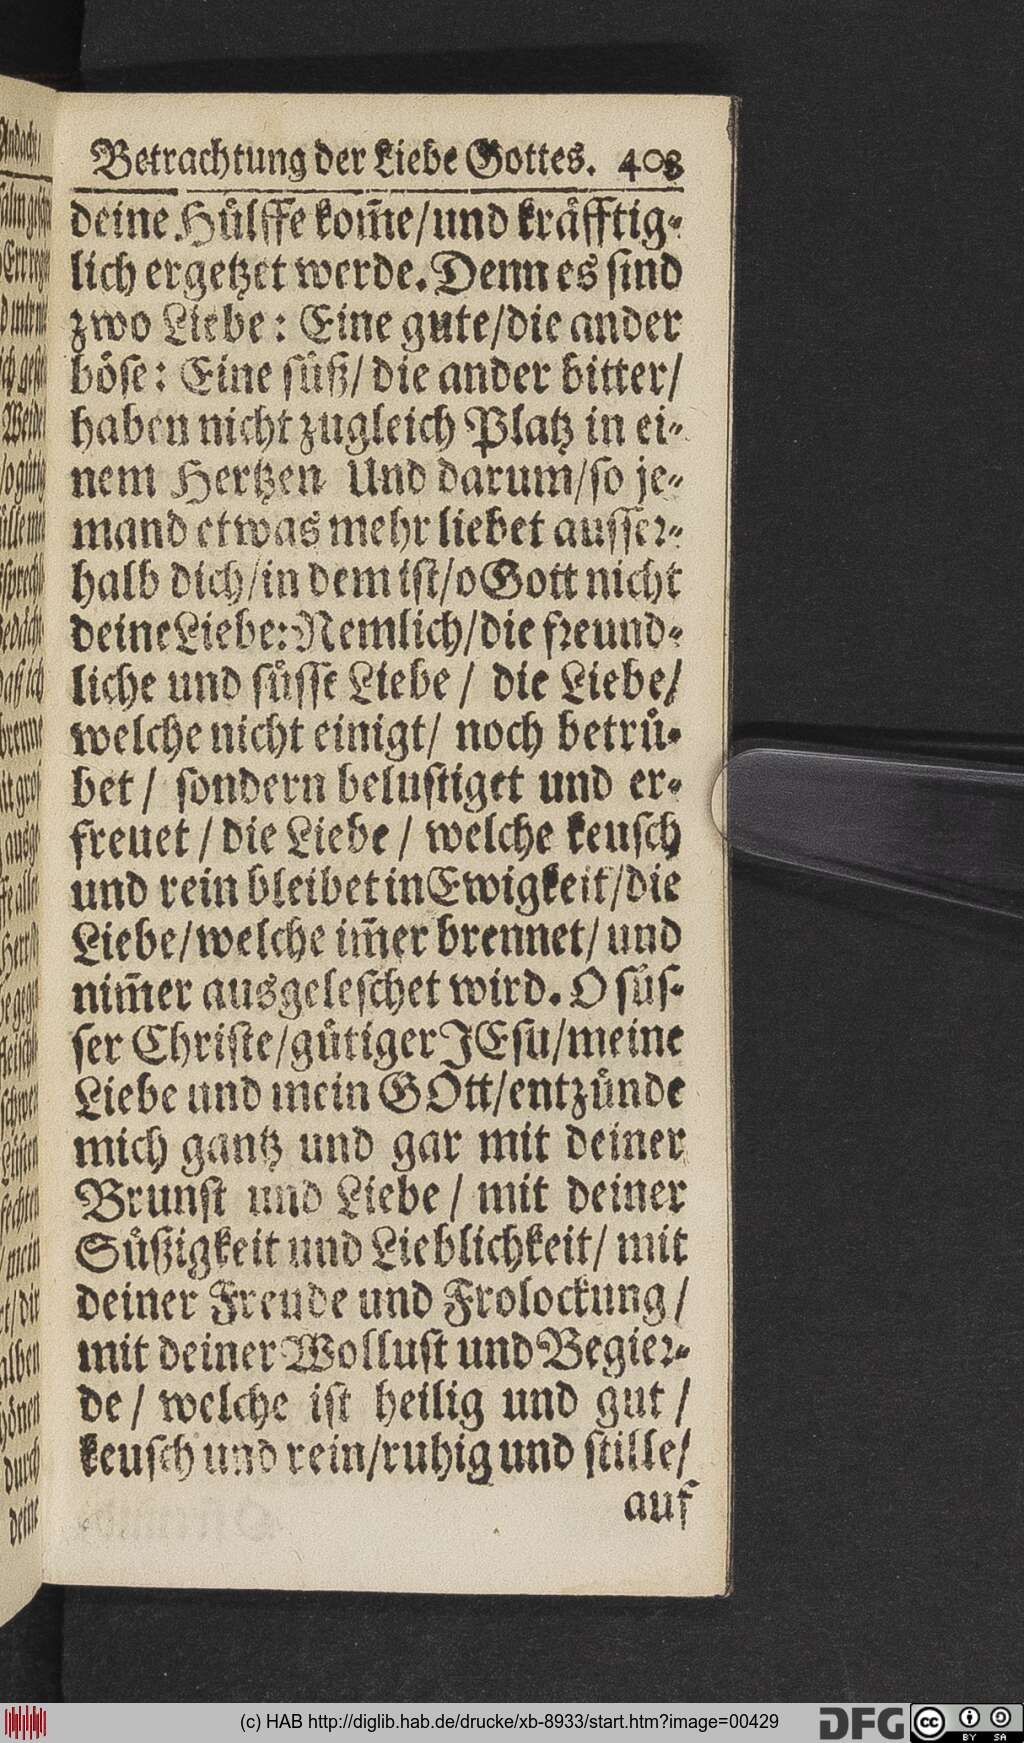 Betrachtung der Liebe Gottes. 403
deine Huͤlffe kom̃e/und kraͤfftig-
lich ergetzet werde. Denn es sind
zwo Liebe: Eine gute/die ander
boͤse: Eine suͤß/ die ander bitter/
haben nicht zugleich Platz in ei-
nem Hertzen Und darum/so je-
mand etwas mehr liebet ausser-
halb dich/in dem ist/o Gott nicht
deine Liebe: Nemlich/die freund-
liche und suͤsse Liebe / die Liebe/
welche nicht einigt/ noch betruͤ-
bet / sondern belustiget und er-
freuet / die Liebe / welche keusch
und rein bleibet in Ewigkeit/die
Liebe/welche im̃er brennet/ und
nim̃er ausgeleschet wird. O suͤs-
ser Christe/guͤtiger JEsu/meine
Liebe und mein GOtt/entzuͤnde
mich gantz und gar mit deiner
Brunst und Liebe / mit deiner
Suͤßigkeit und Lieblichkeit/ mit
deiner Freude und Frolockung /
mit deiner Wollust und Begier-
de / welche ist heilig und gut /
keusch und rein/ruhig und stille/
auf
Andacht/
Weide
daß ich
brenne
mein
durch
deine
(c) HAB http://diglib.hab.de/drucke/xb-8933/start.htm?image=00429
DFG
cc
BY SA